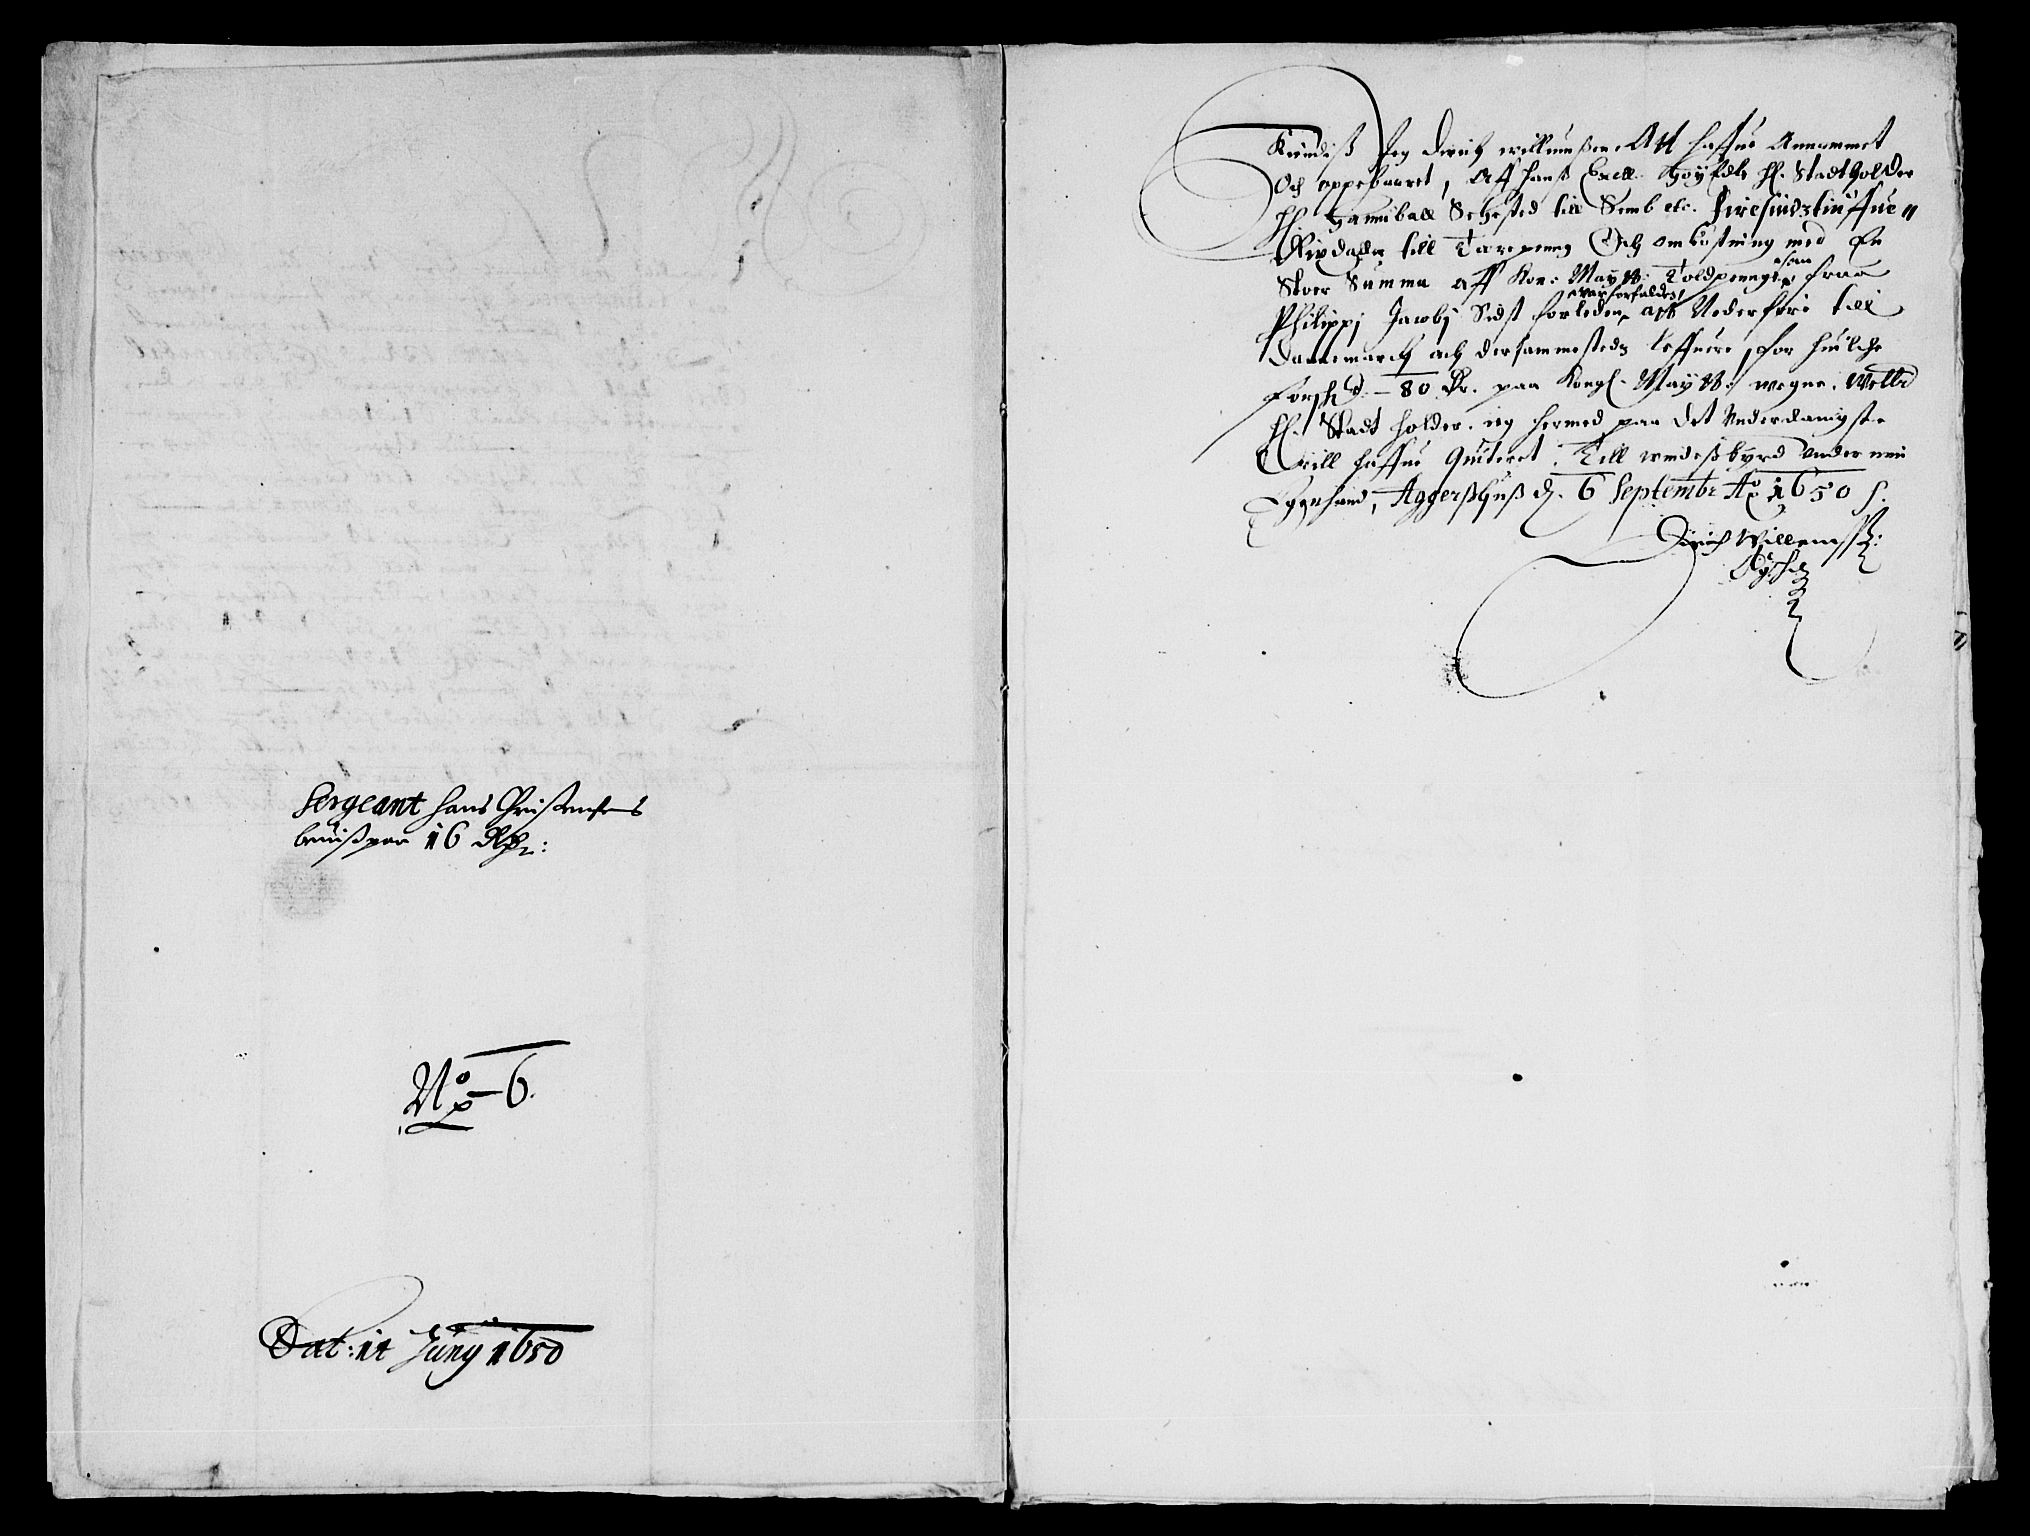 Sergeant Hans Christensens
beuiis paa 16 Rdr:
No 6.
Dat: 11 Juny 1650
Kiendiß Jeg Dirich Willumßen Att haffue Annammet
Och oppebaaret, Aff Hanß Excell. Höyædle H. Stadtholder
H. Hannibal Sehested till Semb etc. Firesindztiuffue
Rixdaler till Tærepeng Och omkostning med En
Stoer Summa Aff Kon: Mayts: Toldpennge, som fraa
Philippj Jacobj Sidst forleden, war forfalden, att Nederføre till
Dannemarch och dersammesteds leffuere, for huilche
forskr. 80 Dr. paa Kongl. Mayts: wegne, Welbr
H. Stadtholder ieg hermed paa det Underdanigste
Will haffue Quiteret. Till windeßbyrd Under min
Egenhand, Aggerßhuß d. 6 Septembr Ao 1650.
Dirich Willemß: